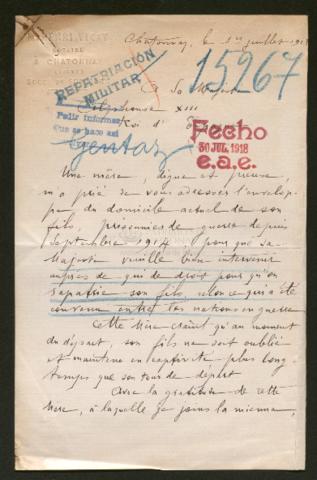 NOTAIRE
A CHATONNAY
Chatonnay, le 1er juillet 1918
15267
REPATRIACION
MILITAR
Pedir informes
Que se hace así
A Sa Majesté
Alphonse XIII
Roi d'Espagne
Gentaz
Fecho
30 JUL. 1918
e.a.e.
Une mère, digne et pieuse,
m'a prié de vous adresser l'envelop-
pe du domicile actuel de son
fils, prisonnier de guerre depuis
Septembre 1914 pour que Sa
Majesté veuille bien intervenir
auprès de qui de droit pour qu'on
rapatrie son fils, selon ce qui a été
convenu entre les nations en guerre
Cette Mère craint qu'au moment
du départ, son fils ne soit oublié
et maintenu en captivité plus long-
temps que son tour de départ
Avec la gratitude de cette
Mère, à laquelle je joins la mienne,